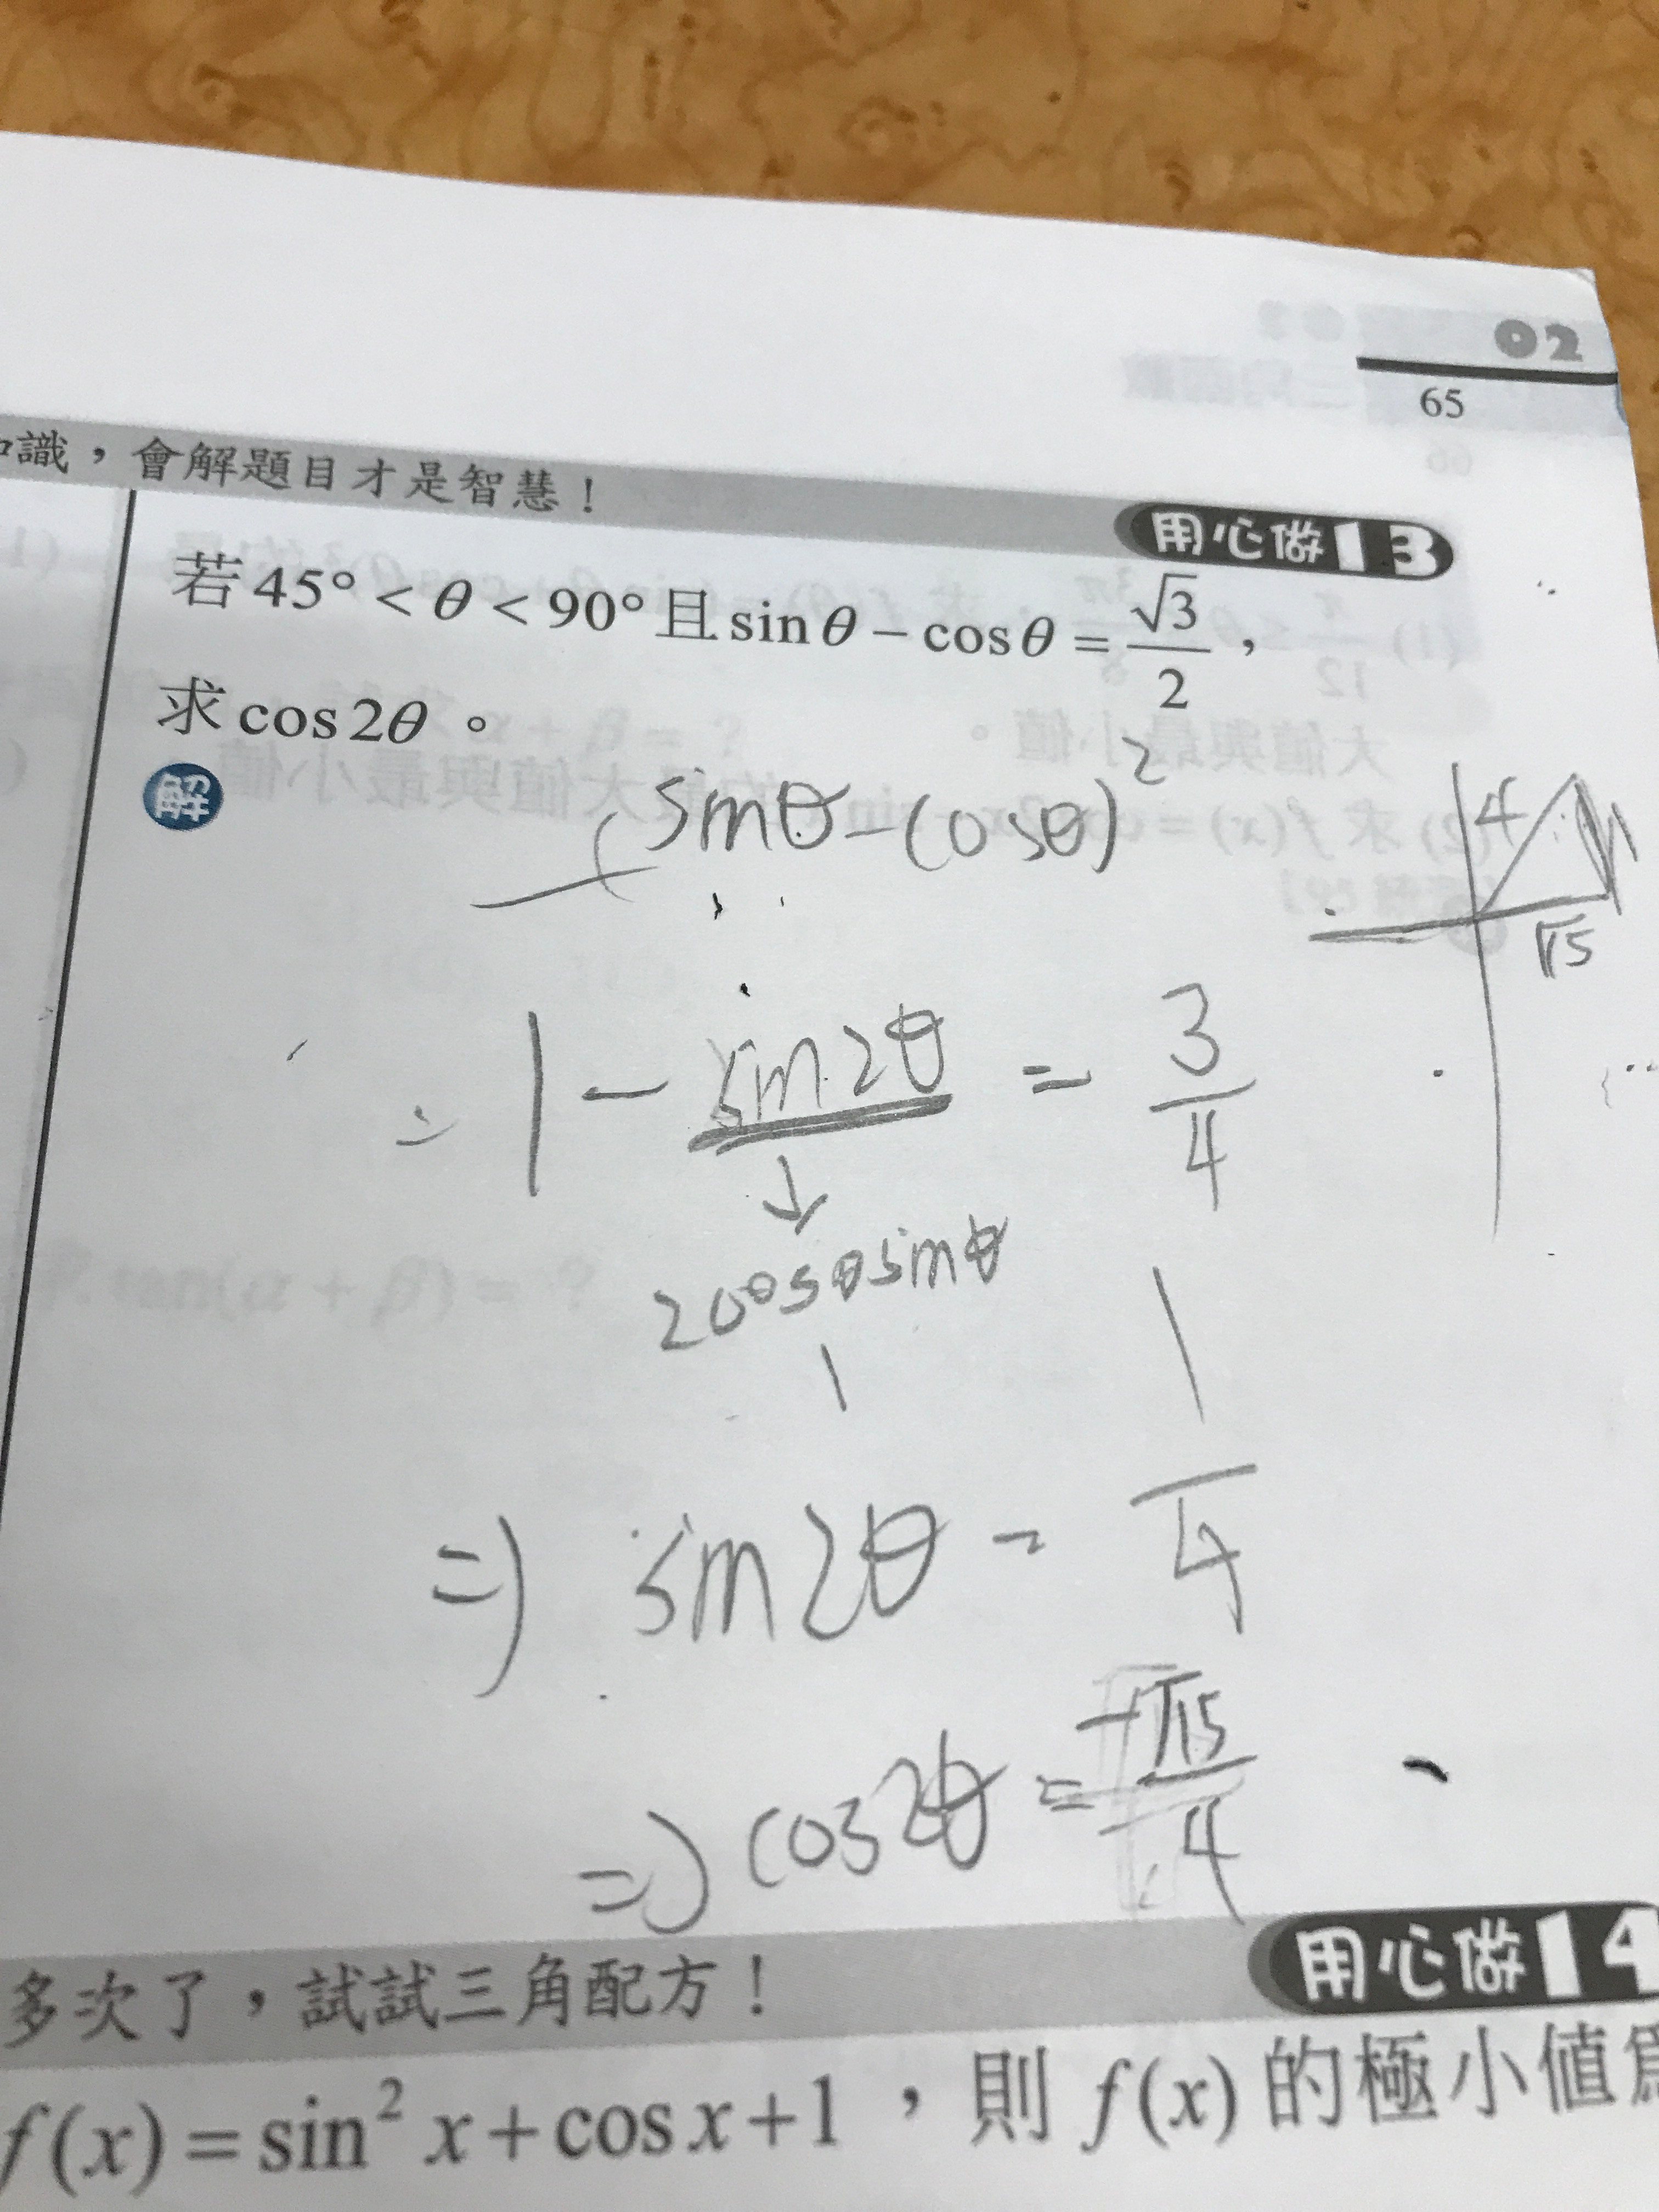 02
65
識，會解題目才是智慧！
用心做13
若 45° < θ < 90° 且 sin θ − cos θ = √3/2 ，
求 cos 2θ 。
解
(sinθ-cosθ)²
4
√15
= 1 - sin2θ = 3/4
↓
2cosθsinθ
=> sin2θ = 1/4
=> cos2θ = -√15/4
多次了，試試三角配方！
用心做14
f(x) = sin² x + cos x + 1 ，則 f(x) 的極小值爲